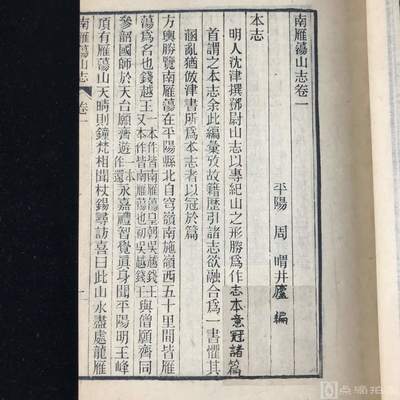 南雁蕩山志卷一
平陽 周 喟井廬 編
本志
明人沈津撰鄧尉山志以專紀山之形勝爲作志本意冠諸篇
首謂之本志余此編彙攷故籍歷引諸志欲融合爲一書懼其
譌亂猶倣津書所爲本志者以冠於篇
方輿勝覽南雁蕩在平陽縣北自穹嶺南施嶺西五十里間皆雁
蕩爲名也錢越王與僧願齊同
參韶國師於天台願齊遊永嘉禮智覺眞身聞平陽明王峰
頂有雁蕩山天晴則鐘梵相聞杖錫尋訪喜曰此山水盡處龍雁
南雁蕩山志
卷一
一
点滴拍卖